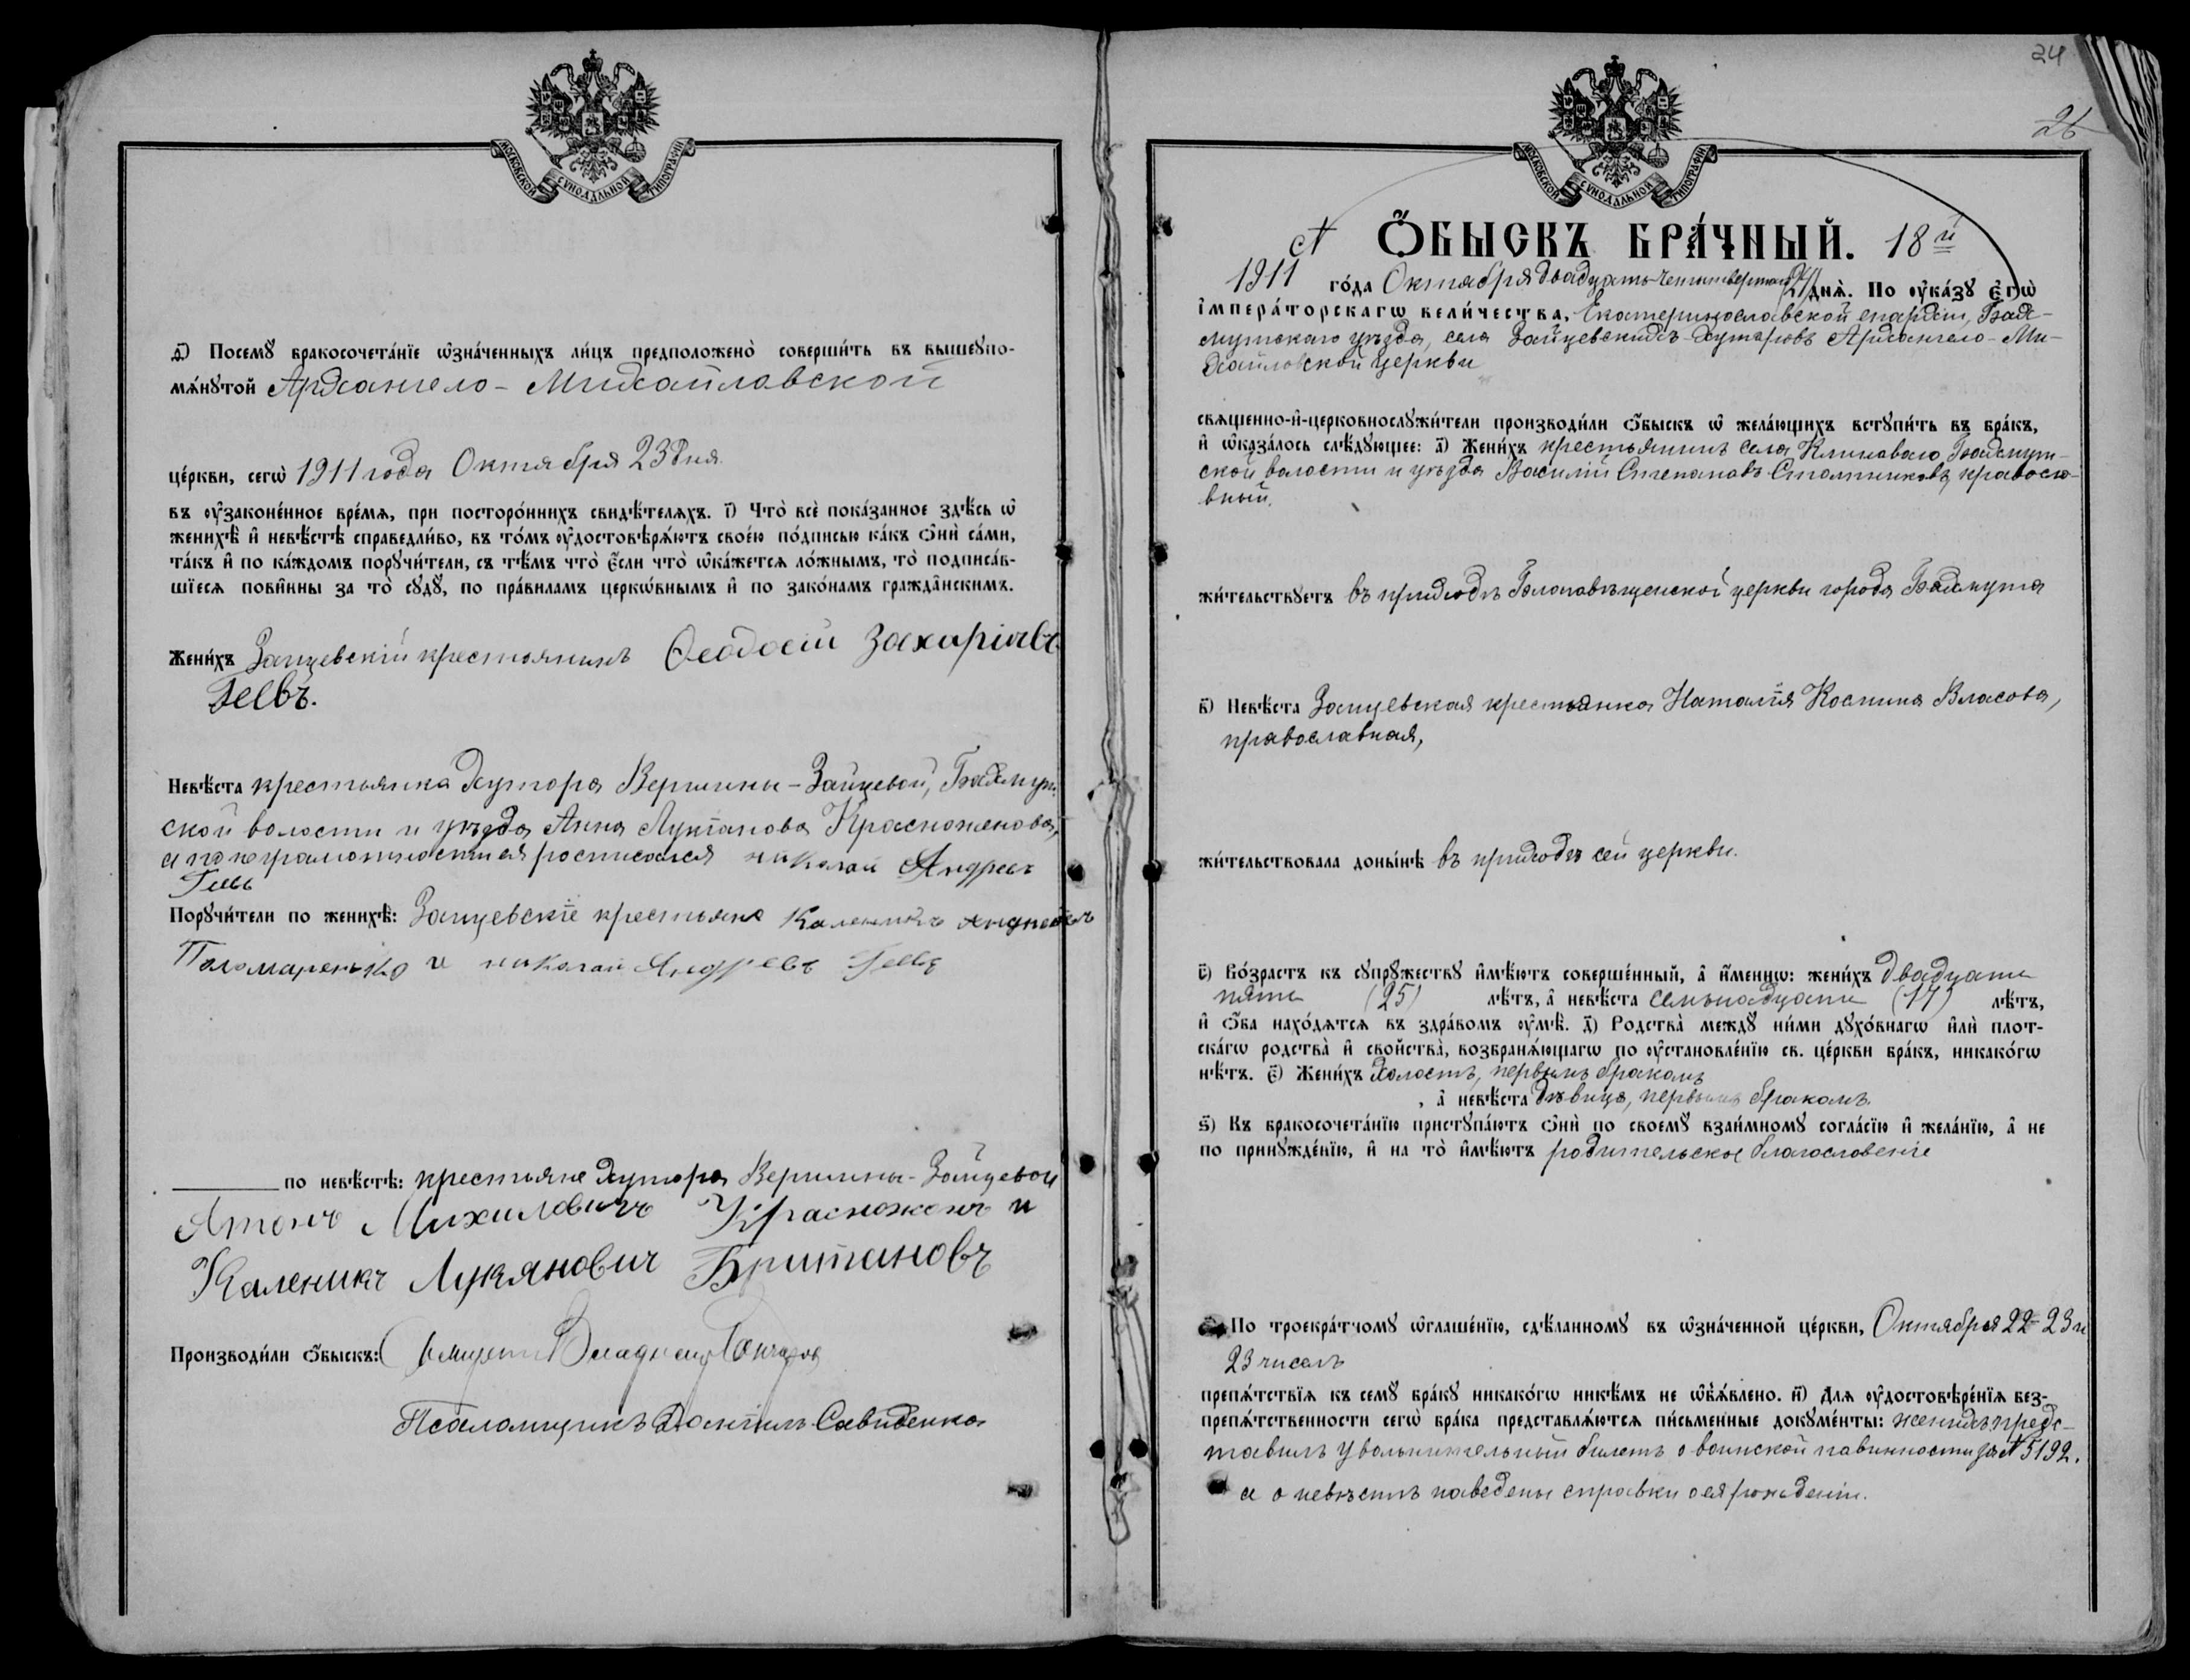 МОСКОВСКОЙ СУНОДАЛЬНОЙ ТИПОГРАФІИ
д҃) Посемꙋ бракосочета́нїе ѡ҆зна́ченныхъ ли́цъ предположено̀ соверши́ть въ вышеꙋпо-
мѧ́нꙋтой Архангело-Михайловской
це́ркви, сегѡ̀ 1911 года Октября 23 дня
въ ᲂу҆законе́нное вре́мѧ, при посторо́ннихъ свидѣ́телѧхъ. і҃) Что̀ всѐ пока́занное здѣ́сь ѡ҆
женихѣ̀ и҆ невѣ́стѣ справедли́во, въ то́мъ ᲂу҆достовѣрѧ́ютъ свое́ю по́дписью ка́къ ѻ҆нѝ са́ми,
та́къ и҆ по ка́ждомъ порꙋчи́тели, съ тѣ́мъ что̀ є҆́сли что̀ ѡ҆ка́жетсѧ ло́жнымъ, то̀ подписа́в-
шїесѧ пови́нны за то̀ сꙋдꙋ̀, по пра́виламъ церкѡ́внымъ и҆ по зако́намъ гражда̂нскимъ.
Жени́хъ Зайцевскій крестьянинъ Ѳеодосій Захаріевъ
Геевъ.
Невѣ́ста крестьянка хутора Вершины-Зайцевой, Бахмут-
ской волости и уѣзда Анна Лукіанова Красноженова,
а по неграмотности ея росписался николай Андреевъ
Геевъ
Порꙋчи́тели по женихѣ̀: Зайцевскіе крестьяне Каленикъ Андреевъ
Паламаренко и николай Андреевъ Геевъ
по невѣ́стѣ: крестьяне хутора Вершины-Зайцевой
Антонъ Михиловичъ Красноженъ и
Каленикъ Лукяновичъ Британовъ
Производи́ли ѻ҆́быскъ: Священникъ Владимиръ Гончаровъ
Псаломщикъ Даніилъ Савиденко
24
26
МОСКОВСКОЙ СУНОДАЛЬНОЙ ТИПОГРАФІИ
№ Ѻ҆́БЫСКЪ БРА́ЧНЫЙ. 18й
1911 го́да Октября двадцать четвертаго 24 днѧ̀. По ᲂу҆ка́зꙋ Є҆гѡ̀
І҆мпера́торскагѡ Вели́чества, Екатеринославской епархіи, Бах-
мутскаго уѣзда, села Зайцевскихъ-хуторовъ Архангело-Ми-
хайловской церкви
свѧщенно-и҆-церковнослꙋжи́тели производи́ли ѻ҆́быскъ ѡ҆ жела́ющихъ встꙋпи́ть въ бра́къ,
и҆ ѡ҆каза́лось слѣ́дꙋющее: а҃) Жени́хъ крестьянинъ села Клиноваго Бахмут-
ской волости и уѣзда Василій Степановъ Столпниковъ, правосла-
вный.
жи́тельствꙋетъ въ приходѣ Благовѣщенской церкви города Бахмута
в҃) Невѣ́ста Зайцевская крестьянка Наталія Космина Власова,
православная,
жи́тельствовала доны́нѣ въ приходѣ сей церкви.
г҃) Во́зрастъ къ сꙋпрꙋ́жествꙋ и҆мѣ́ютъ соверше́нный, а҆ и҆́меннѡ: жени́хъ двадцати
пяти (25) лѣ́тъ, а҆ невѣ́ста семьнадцати (17) лѣ́тъ,
и҆ ѻ҆́ба нахо́дѧтсѧ въ здра́вомъ ᲂу҆мѣ̀. д҃) Родства̀ междꙋ̀ ни́ми дꙋхо́внагѡ и҆лѝ плот-
ска́гѡ родства̀ и҆ сво́йства̀, возбранѧ́ющагѡ по ᲂу҆становле́нїю св. це́ркви бра́къ, никако́гѡ
нѣ́тъ. є҃) Жени́хъ холостъ, первымъ бракомъ
, а҆ невѣ́ста дѣвица, первымъ бракомъ.
ѕ҃) Къ бракосочета́нїю пристꙋпа́ютъ ѻ҆нѝ по своемꙋ̀ взаи́мномꙋ согла́сїю и҆ жела́нїю, а҆ не
по принꙋжде́нїю, и҆ на то̀ и҆мѣ́ютъ родительское благословеніе
По троекра́тномꙋ ѡ҆глаше́нїю, сдѣ́ланномꙋ въ ѡ҆зна́ченной це́ркви, Октября 22- 23 и
23 чиселъ
препѧ́тствїѧ къ семꙋ̀ бра́кꙋ никако́гѡ никѣ́мъ не ѡ҆б̾ѧ́влено. и҃) Длѧ ᲂу҆достовѣре́нїѧ без-
препѧ́тственности сегѡ̀ бра́ка представлѧ́ютсѧ пи́сьменные докꙋме́нты: женихъ предс-
тавилъ увольнительный билетъ о воинской павинности за № 5192.
а о невѣстѣ наведены справки о ея рожденіи.